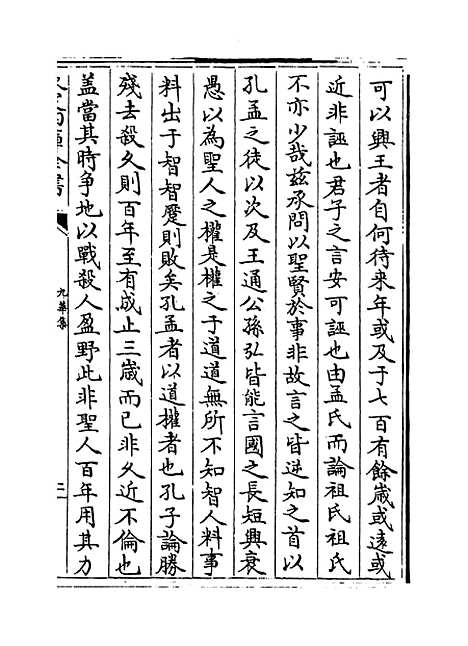 可以興王者自何待来年或及于七百有餘歳或逺或
近非誣也君子之言安可誣也由孟氏而論祖氏祖氏
不亦少哉兹承問以聖賢於事非故言之皆逆知之首以
孔孟之徒以次及王通公孫弘皆能言國之長短興衰
愚以為聖人之權是權之于道道無所不知智人料事
料出于智智蹷則敗矣孔孟者以道權者也孔子論勝
殘去殺久則百年至有成止三歳而已非久近不倫也
盖當其時争地以戰殺人盈野此非聖人百年用其力
九華集